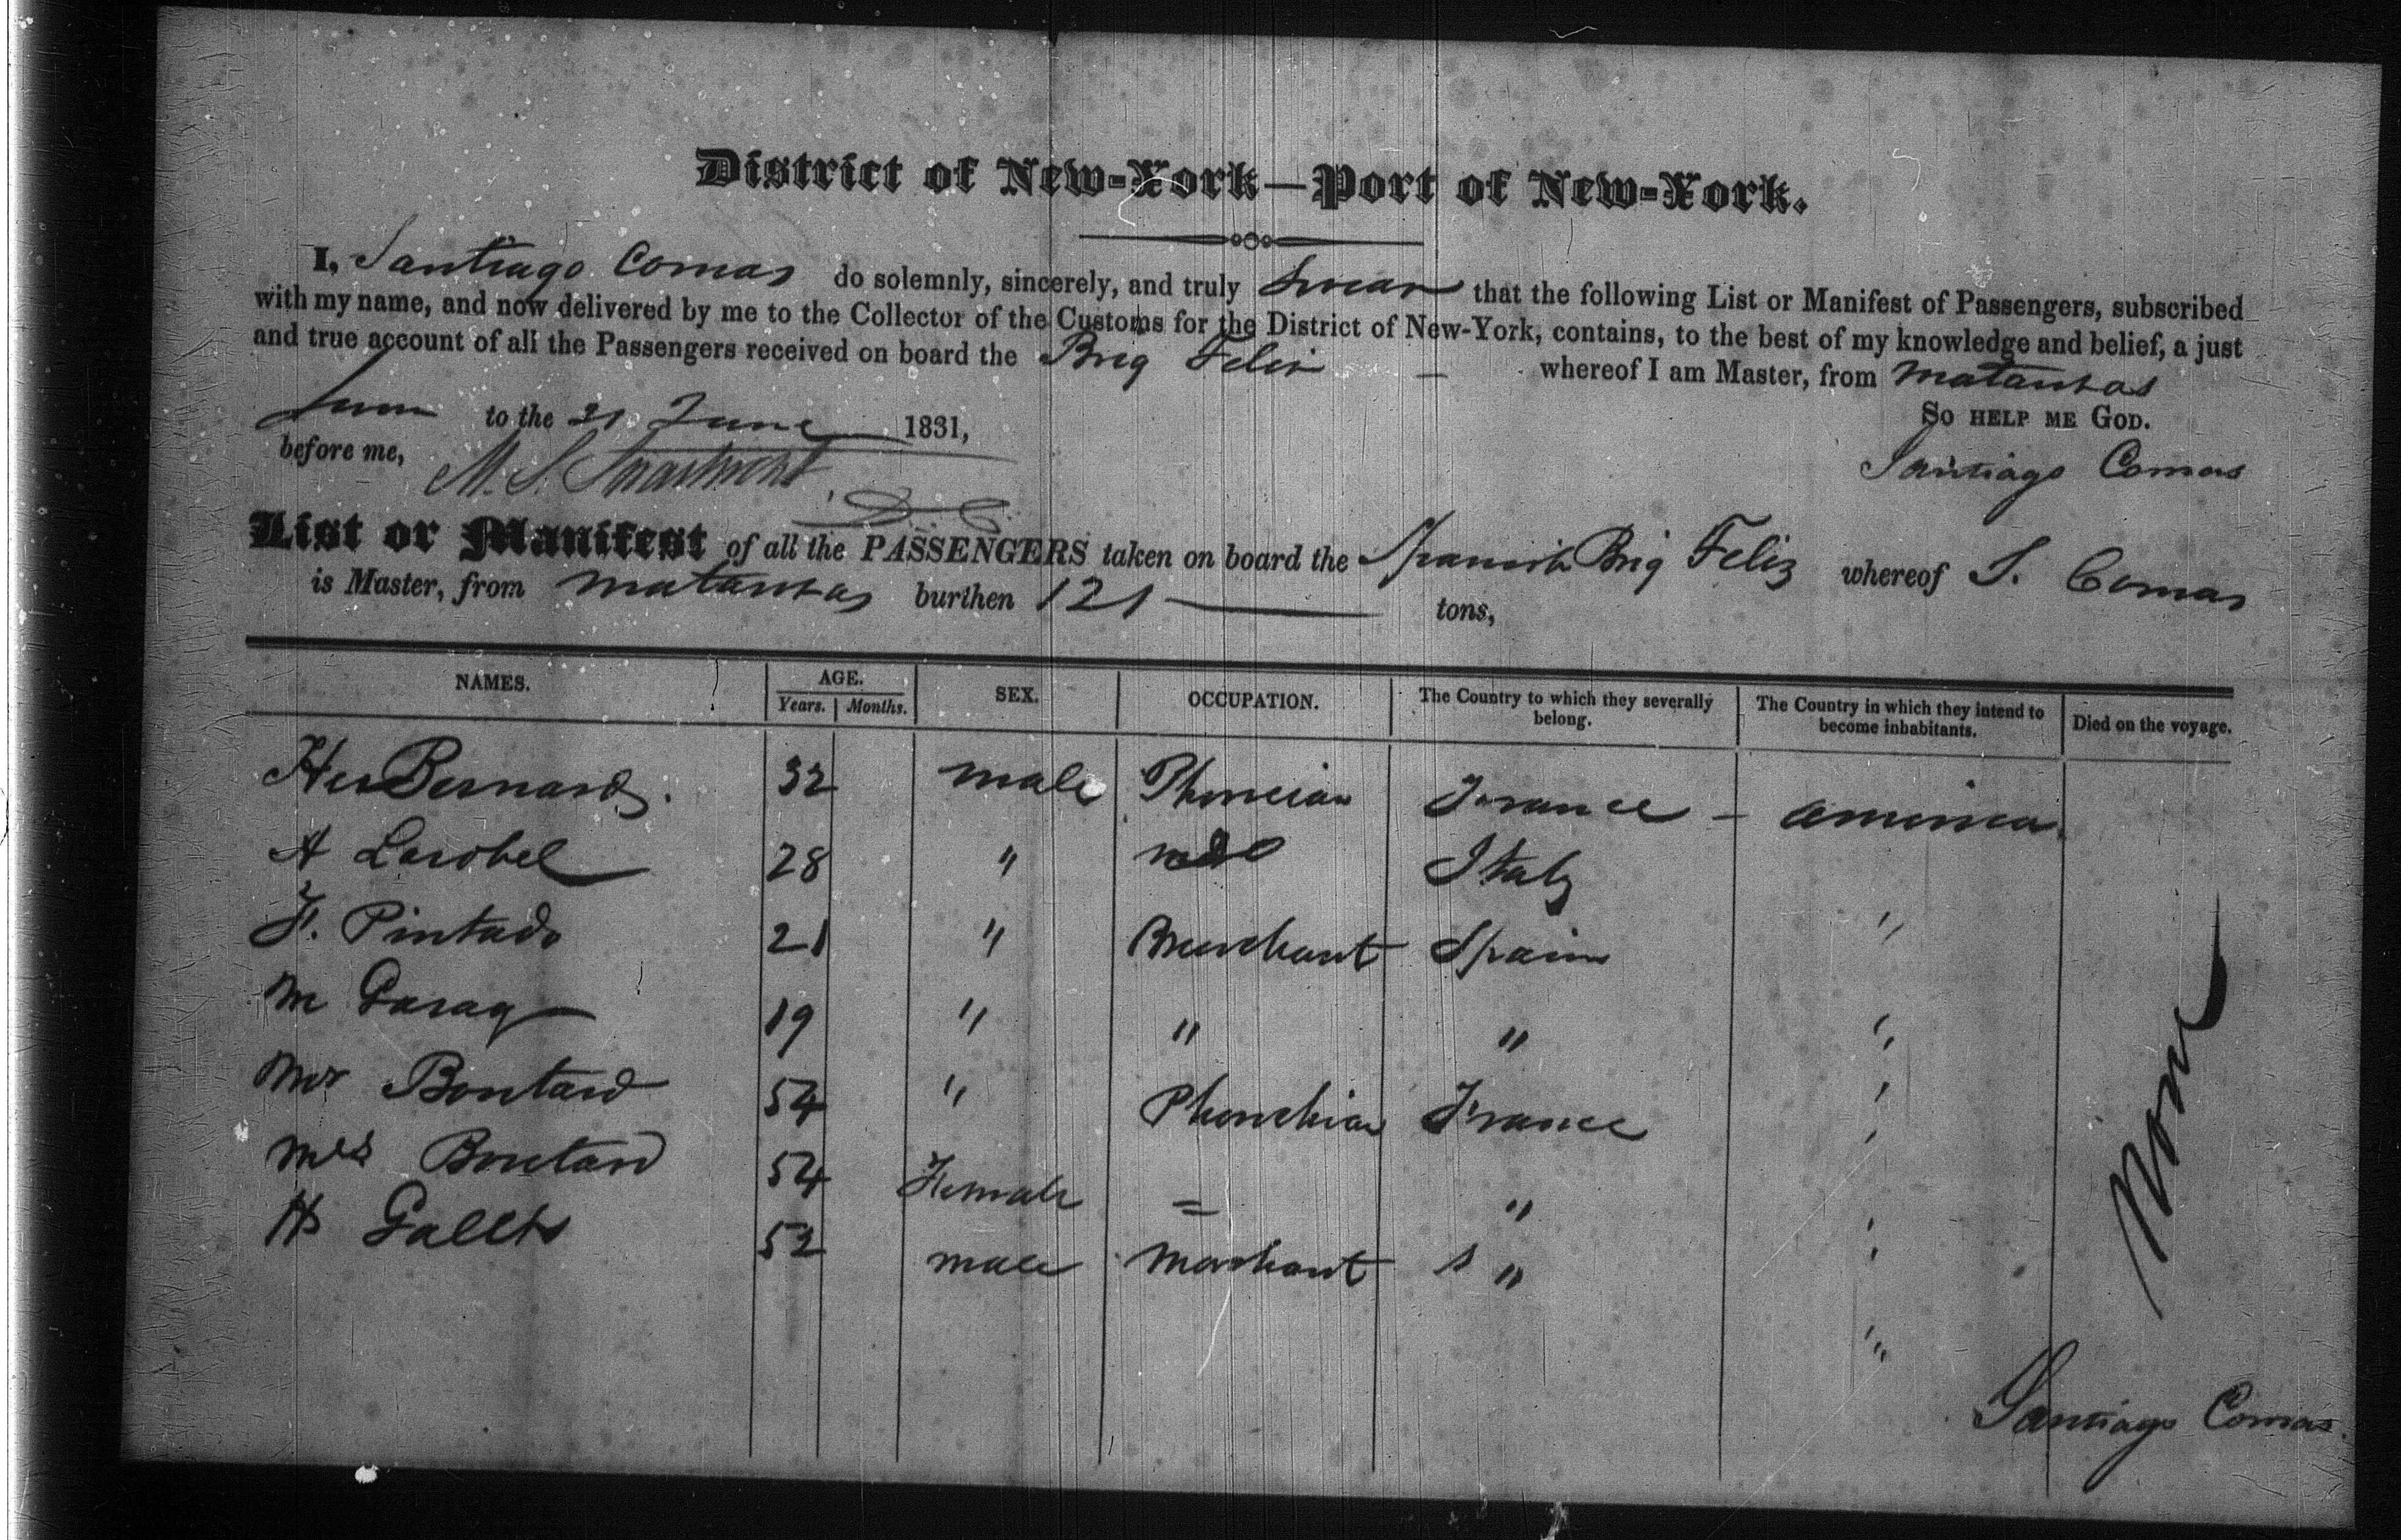 District of New-York—Port of New-York.
I, Santiago Comas do solemnly, sincerely, and truly Swear that the following List or Manifest of Passengers, subscribed
with my name, and now delivered by me to the Collector of the Customs for the District of New-York, contains, to the best of my knowledge and belief, a just
and true account of all the Passengers received on board the Brig Felix whereof I am Master, from Matanzas
Sworn to the 21 June 1831,
So help me God.
before me,
Santiago Comas
List or Manifest of all the PASSENGERS taken on board the Spanish Brig Feliz whereof S. Comas
is Master, from Matanzas burthen 121 — tons,
NAMES. AGE. SEX. OCCUPATION. The Country to which they severally belong. The Country in which they intend to become inhabitants. Died on the voyage.
Years. Months.
Bernard. 32 male France - America
A 28 " Italy
F. Pintado 21 " Merchant Spain "
M 19 " " " "
Mr Boutard 54 " France "
Mrs Boutard 54 Female = " "
52 male Merchant " "
None
Santiago Comas